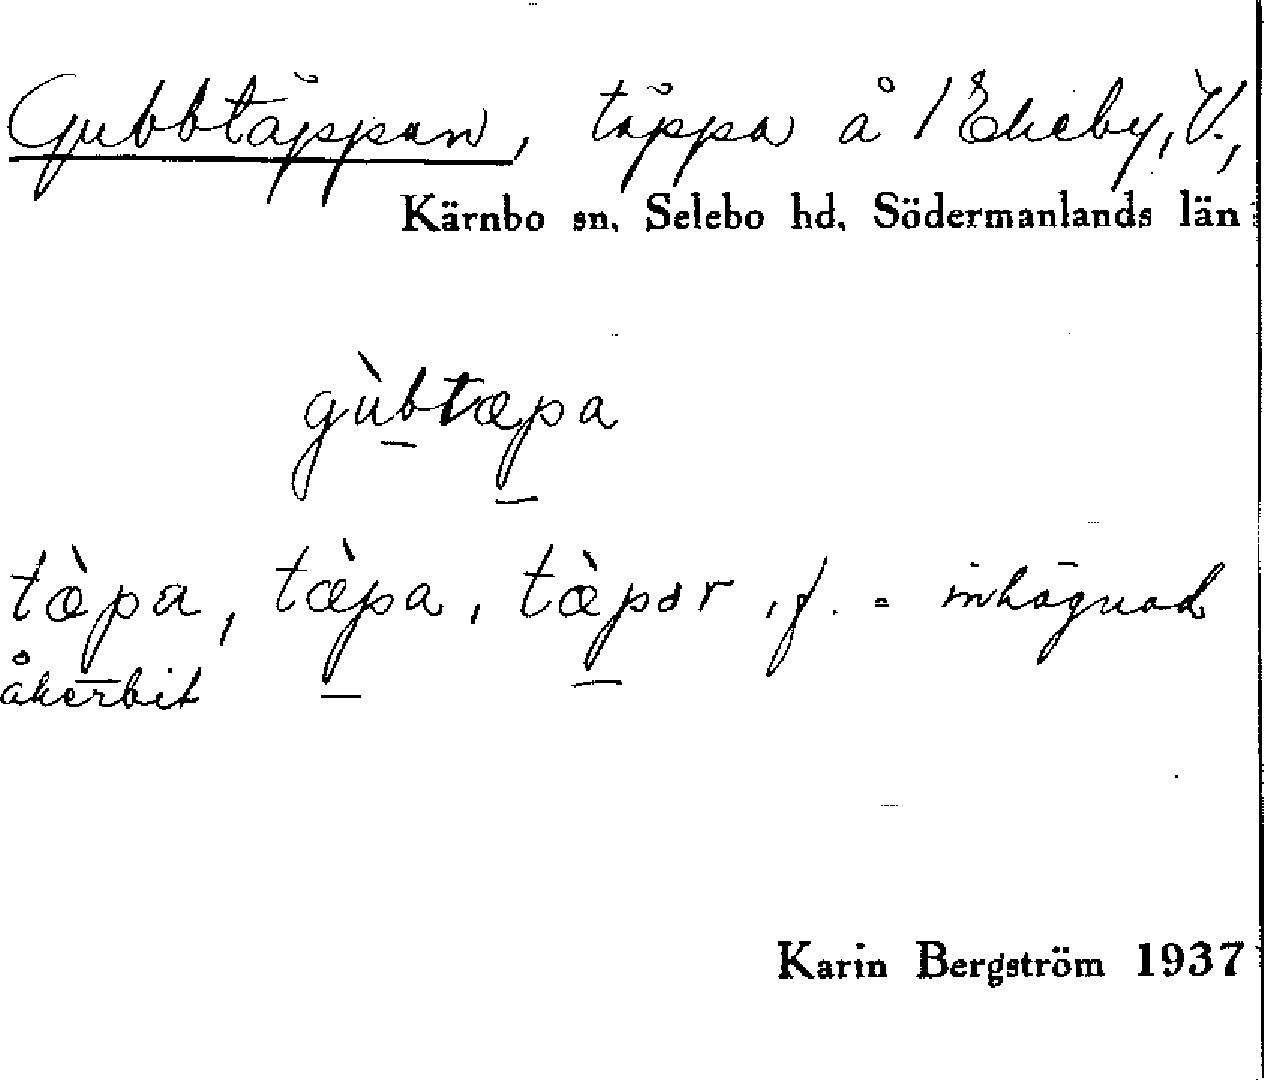 Gubbtäppan, täppa å 1⁸ Ekeby, V.,
Kärnbo sn, Selebo hd, Södermanlands län
gùb̲tæp̲a
tæ̀p̲a, tæ̀p̲a, tæ̀p̲ər, f. = inhägnad
åkerbit
Karin Bergström 1937